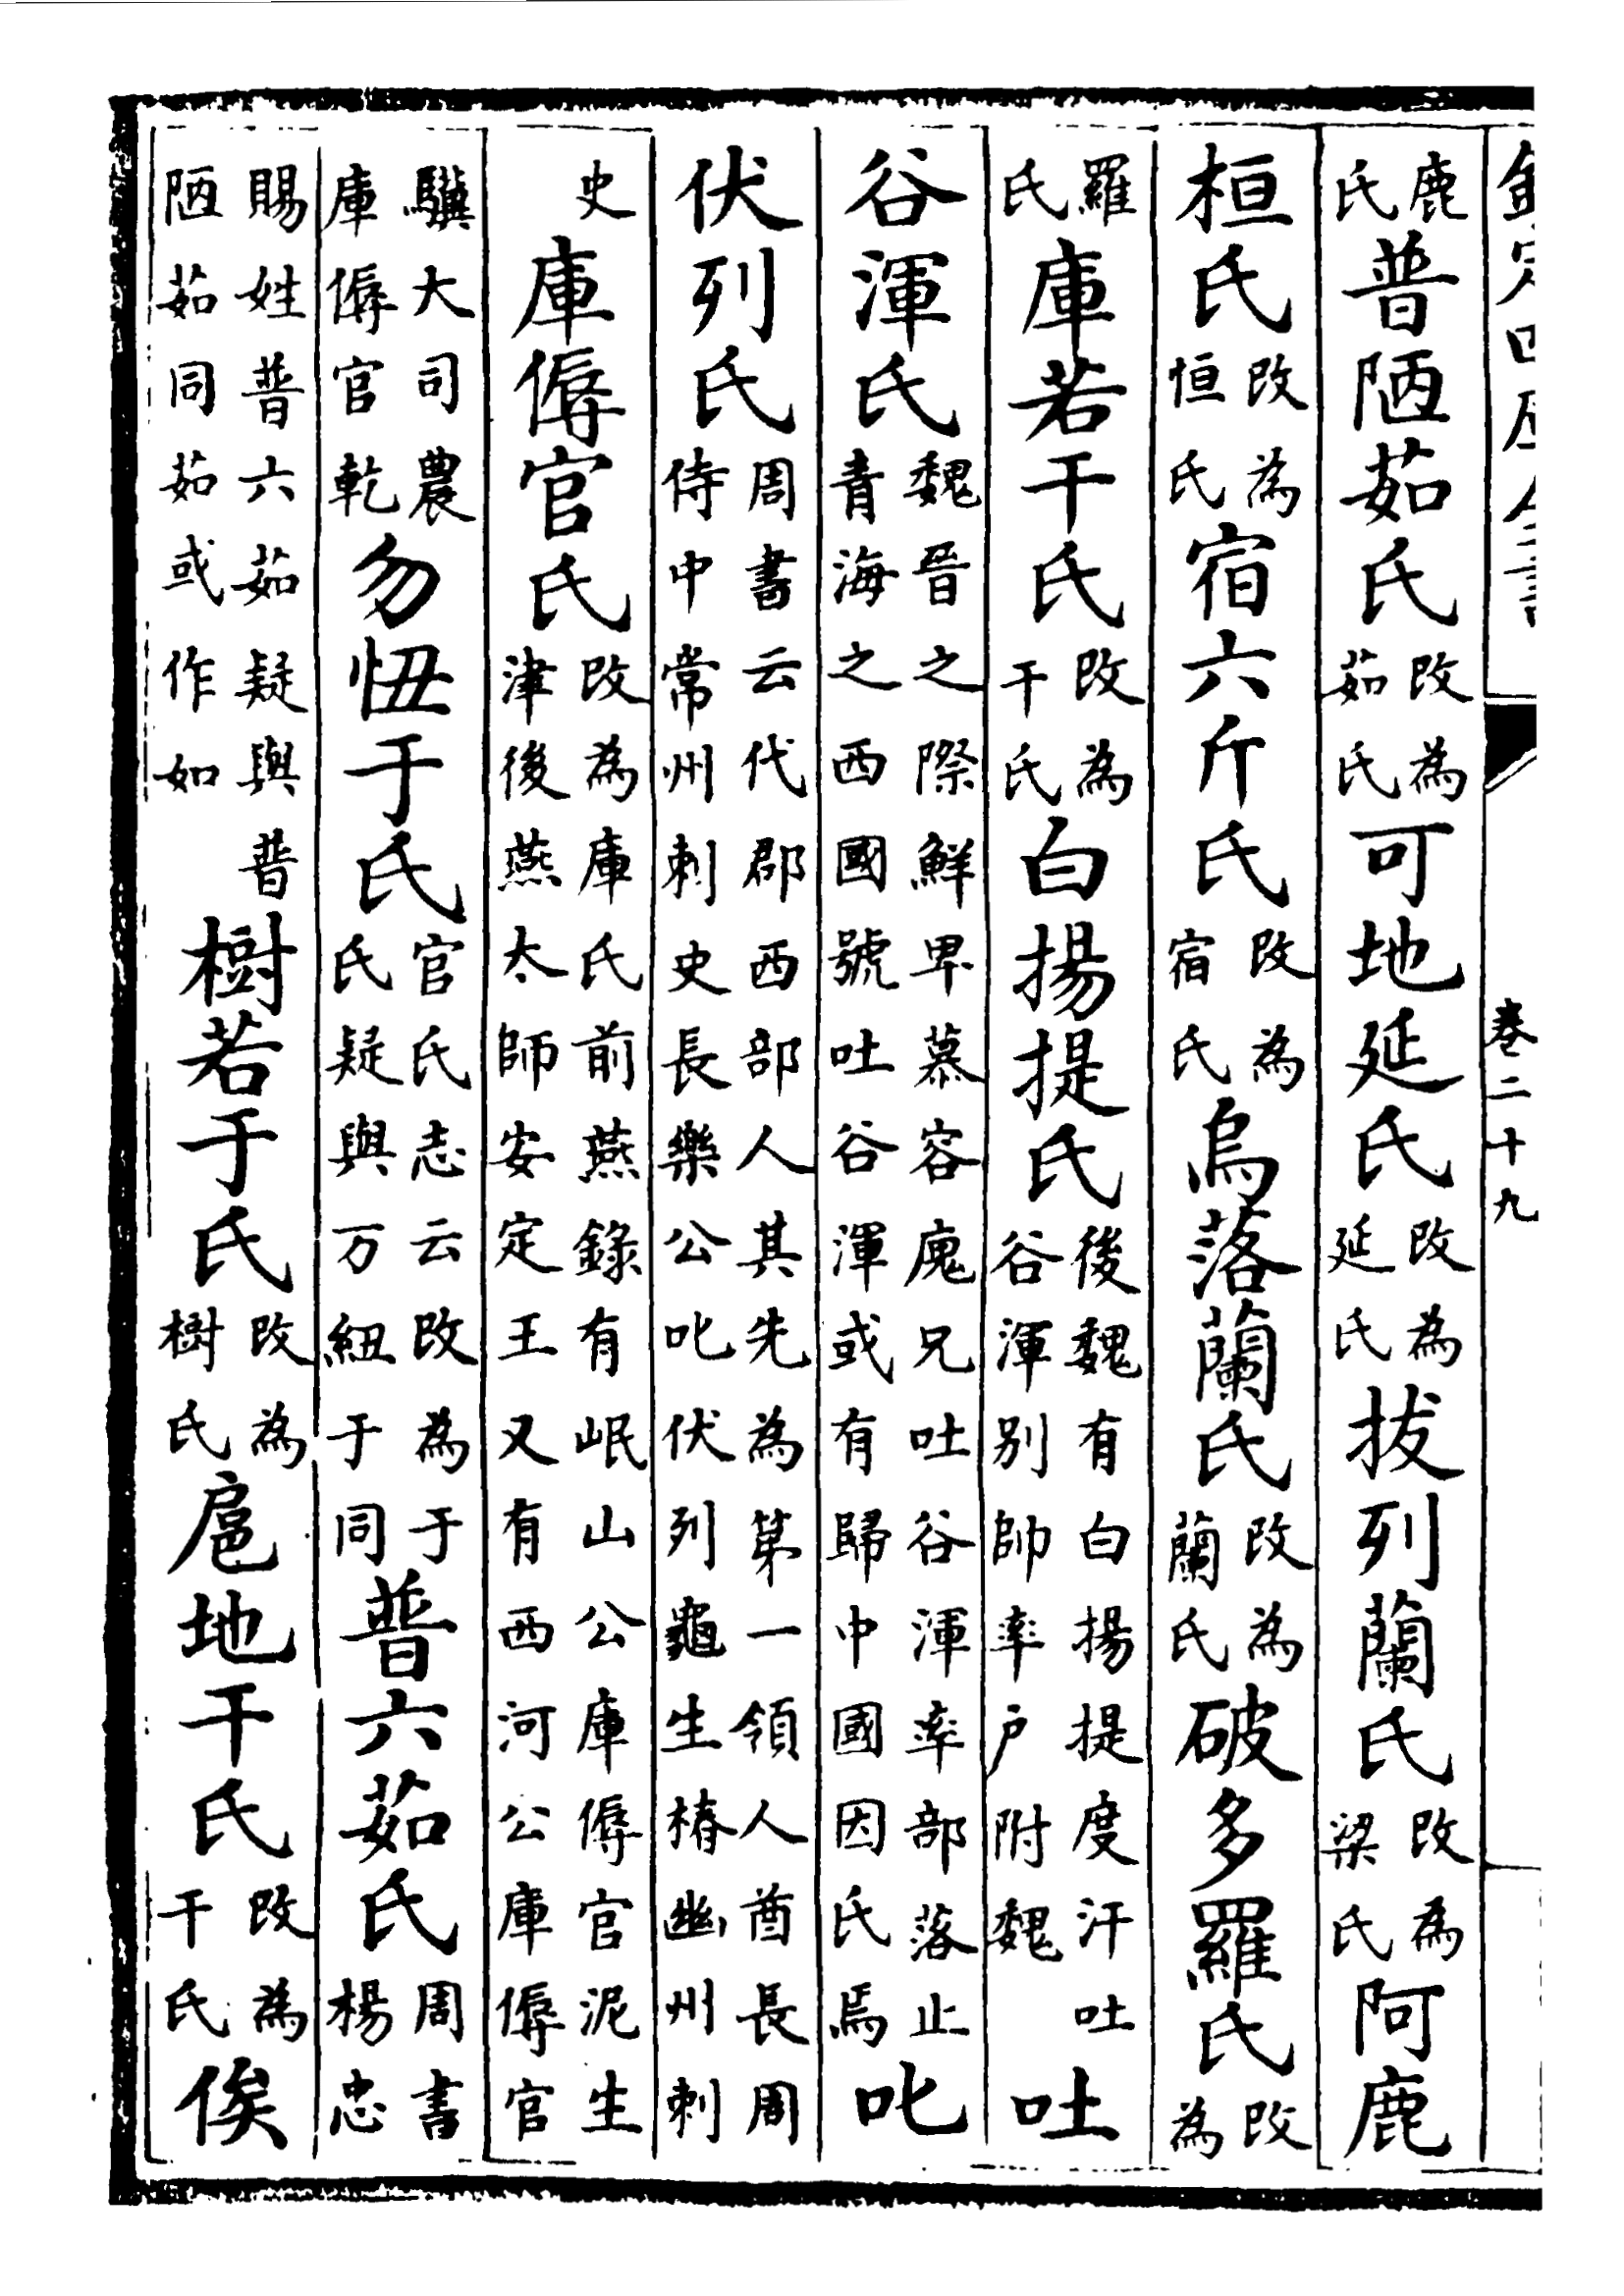 欽定四庫全書　卷二十九
鹿氏普陋茹氏改為茹氏可地延氏改為延氏拔列蘭氏改為梁氏阿鹿
桓氏改為恒氏宿六斤氏改為宿氏烏落蘭氏改為蘭氏破多羅氏改為
羅氏庫若干氏改為干氏白揚提氏後魏有白揚提度汗吐谷渾別帥率户附魏吐
谷渾氏魏晉之際鮮卑慕容廆兄吐谷渾率部落止青海之西國號吐谷渾或有歸中國因氏焉叱
伏列氏周書云代郡西部人其先為第一領人酋長周侍中常州刺史長樂公叱伏列龜生椿幽州刺
史庫傉官氏改為庫氏前燕錄有岷山公庫傉官泥生津後燕太師安定王又有西河公庫傉官
驥大司農庫傉官乾勿忸于氏官氏志云改為于氏疑與万紐于同普六茹氏周書楊忠
賜姓普六茹疑與普陋茹同茹或作如樹若于氏改為樹氏扈地干氏改為干氏俟